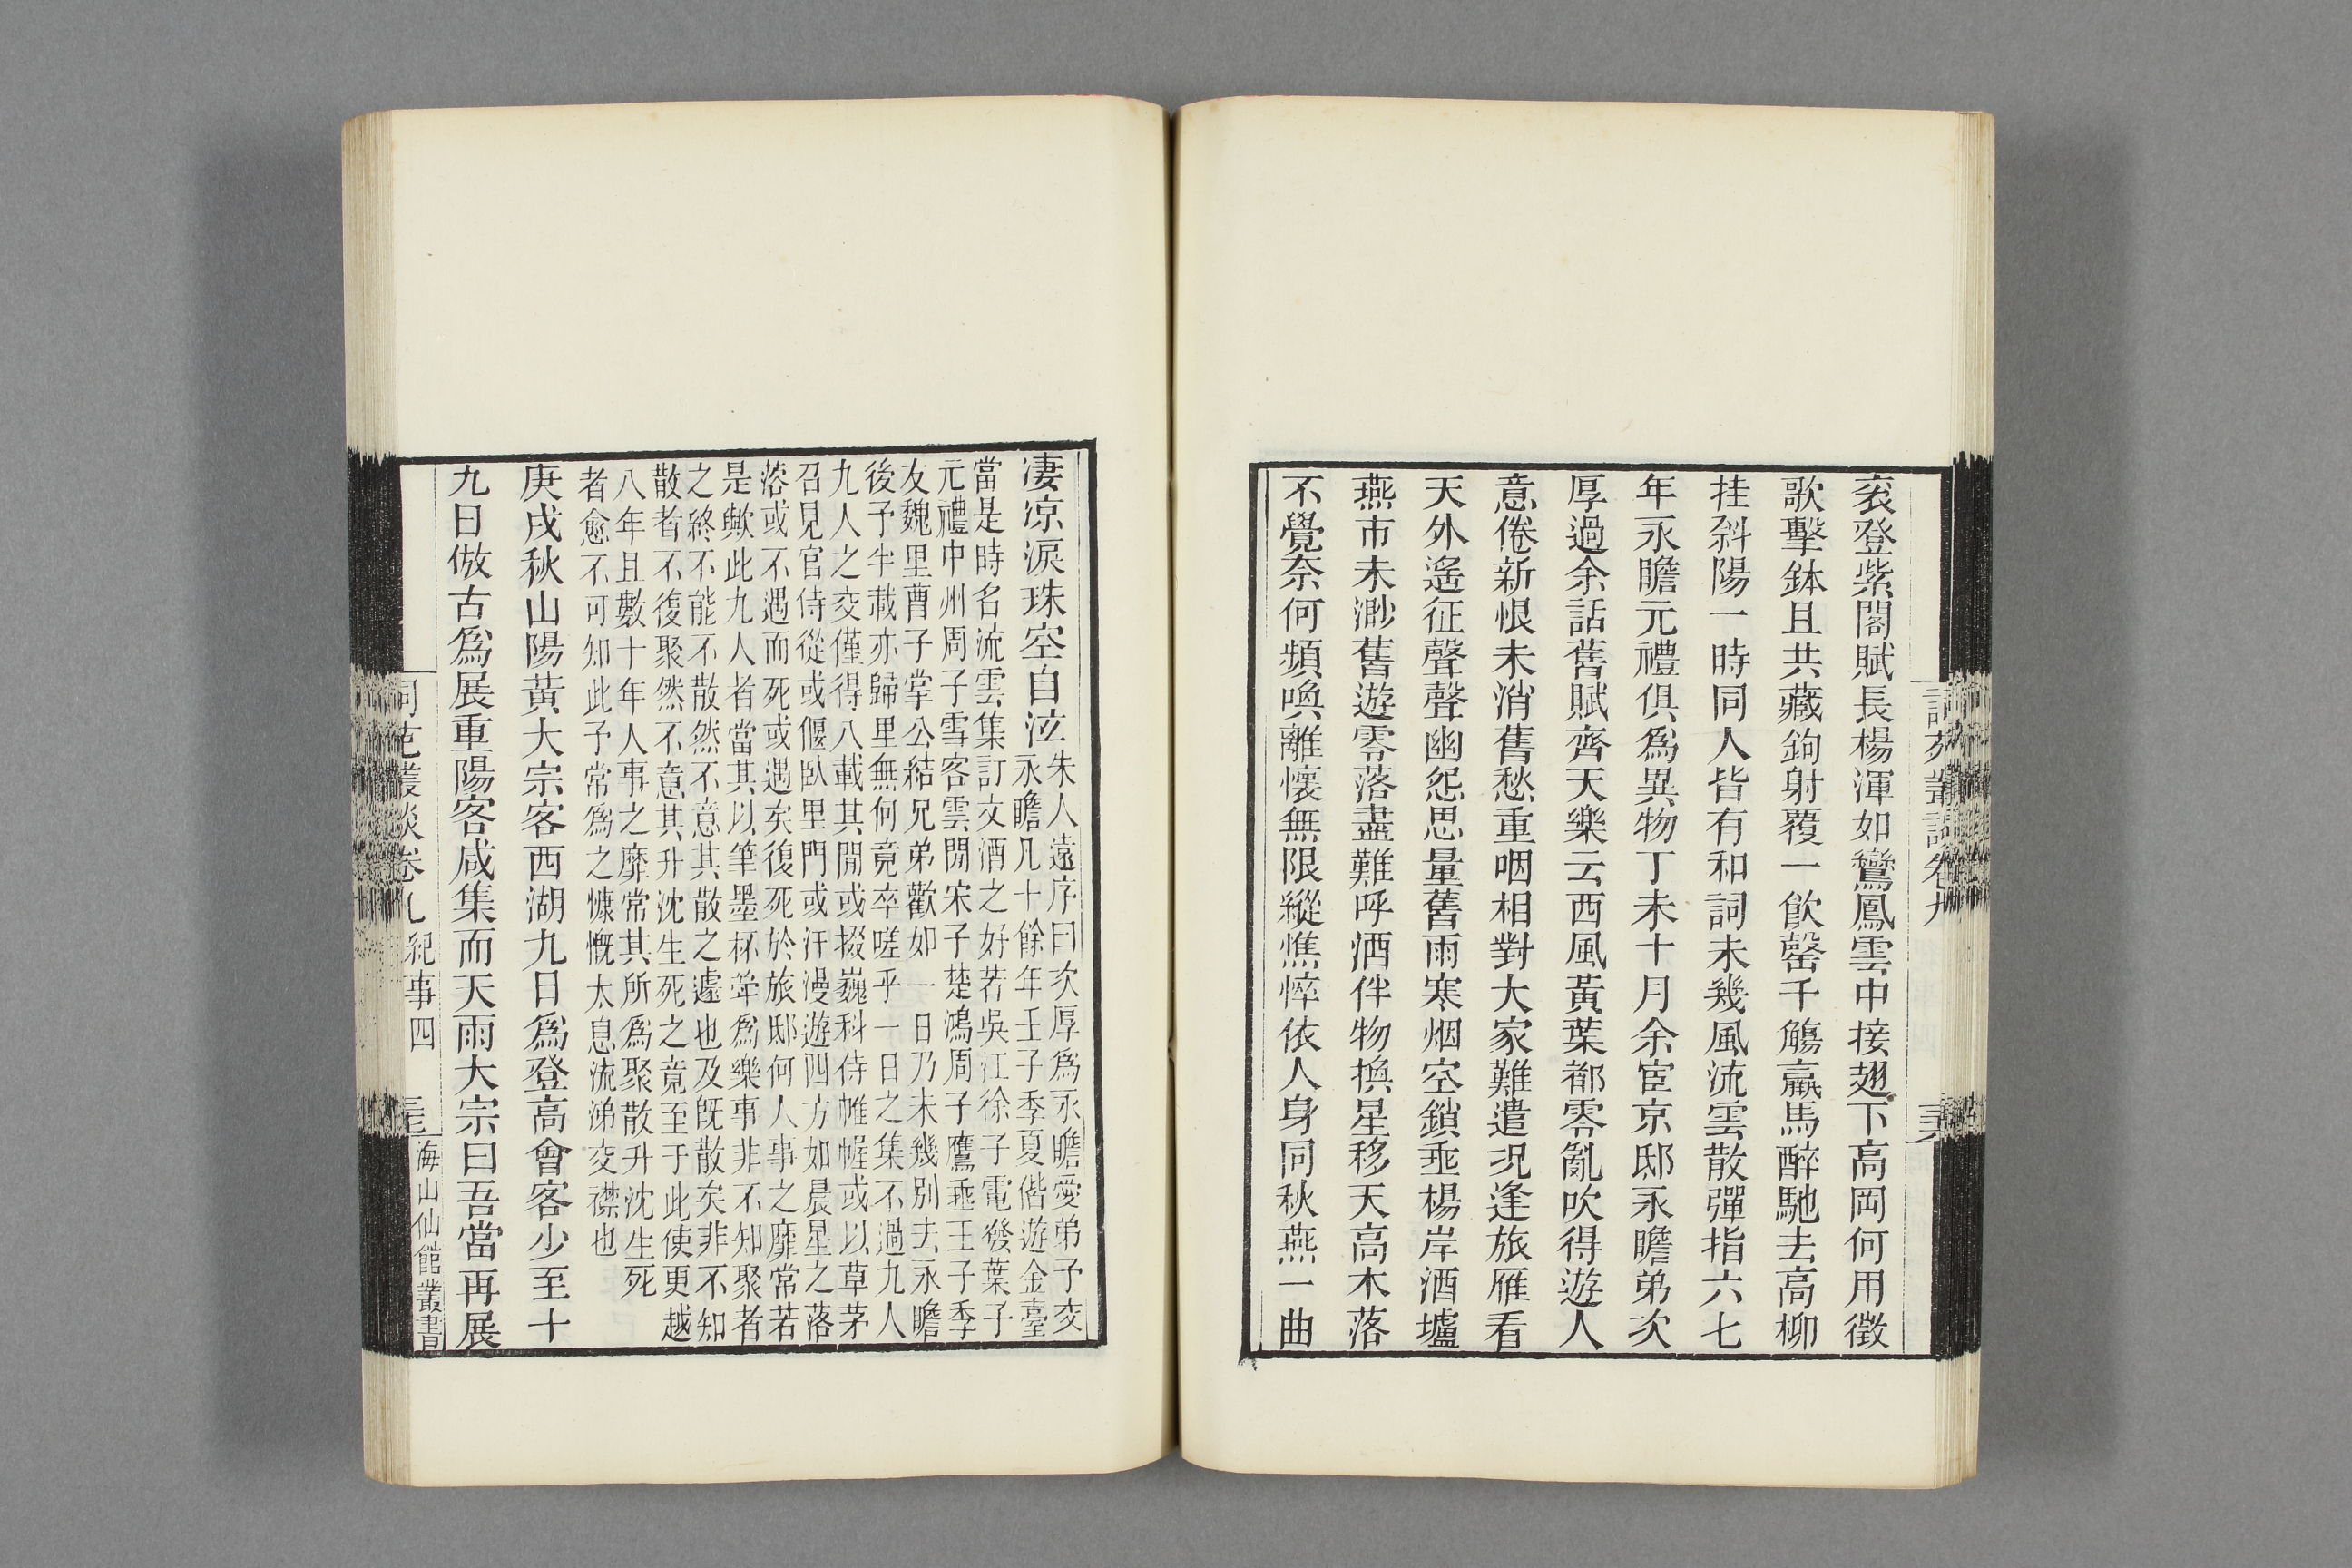 袞登紫閣賦長楊渾如鸞鳳雲中接翅下高岡何用徵
歌擊鉢且共藏鉤射覆一飲罄千觴羸馬醉馳去高柳
挂斜陽一時同人皆有和詞未幾風流雲散彈指六七
年永瞻元禮俱為異物丁未十月余宦京邸永瞻弟次
厚過余話舊賦齊天樂云西風黃葉都零亂吹得遊人
意倦新恨未消舊愁重咽相對大家難遣況逢旅雁看
天外遙征聲聲幽怨思量舊雨寒烟空鎖垂楊岸酒壚
燕市未渺舊遊零落盡難呼酒伴物換星移天高木落
不覺奈何頻喚離懷無限縱憔悴依人身同秋燕一曲
淒涼淚珠空自泣
朱人遠序曰次厚為永瞻愛弟予交
永瞻凡十餘年壬子季夏偕遊金臺
當是時名流雲集訂交酒之好若吳江徐子電發葉子
元禮中州周子雪客雲閒宋子楚鴻周子鷹垂王子季
友魏里曹子掌公結兄弟歡如一日乃未幾別去永瞻
後予半載亦歸里無何竟卒嗟乎一日之集不過九人
九人之交僅得八載其閒或掇巍科侍帷幄或以草茅
召見官侍從或偃臥里門或汗漫遊四方如晨星之落
落或不遇而死或遇矣復死於旅邸何人事之靡常若
是歟此九人者當其以筆墨杯斝為樂事非不知聚者
之終不能不散然不意其散之遽也及旣散矣非不知
散者不復聚然不意其升沈生死之竟至于此使更越
八年且數十年人事之靡常其所為聚散升沈生死
者愈不可知此予常為之慷慨太息流涕交襟也
庚戌秋山陽黃大宗客西湖九日為登高會客少至十
九日倣古為展重陽客咸集而天雨大宗曰吾當再展
詞苑叢談卷九 紀事四
海山仙館叢書